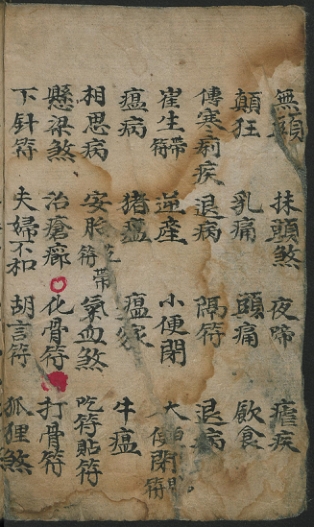 無頭 抹頭煞 夜啼 瘧疾
顛狂 乳痛 頭痛 飲食
傳寒痢疾 退病 隔符 退病
崔生帶符 逆産 小便閉 大便閉符
瘟病 猪瘟 瘟家 牛瘟
相思病 安胎符帶 氣血煞 吃符貼符
懸梁煞 治瘡癤 化骨符 打骨符
下針符 夫婦不和 胡言符 狐狸煞